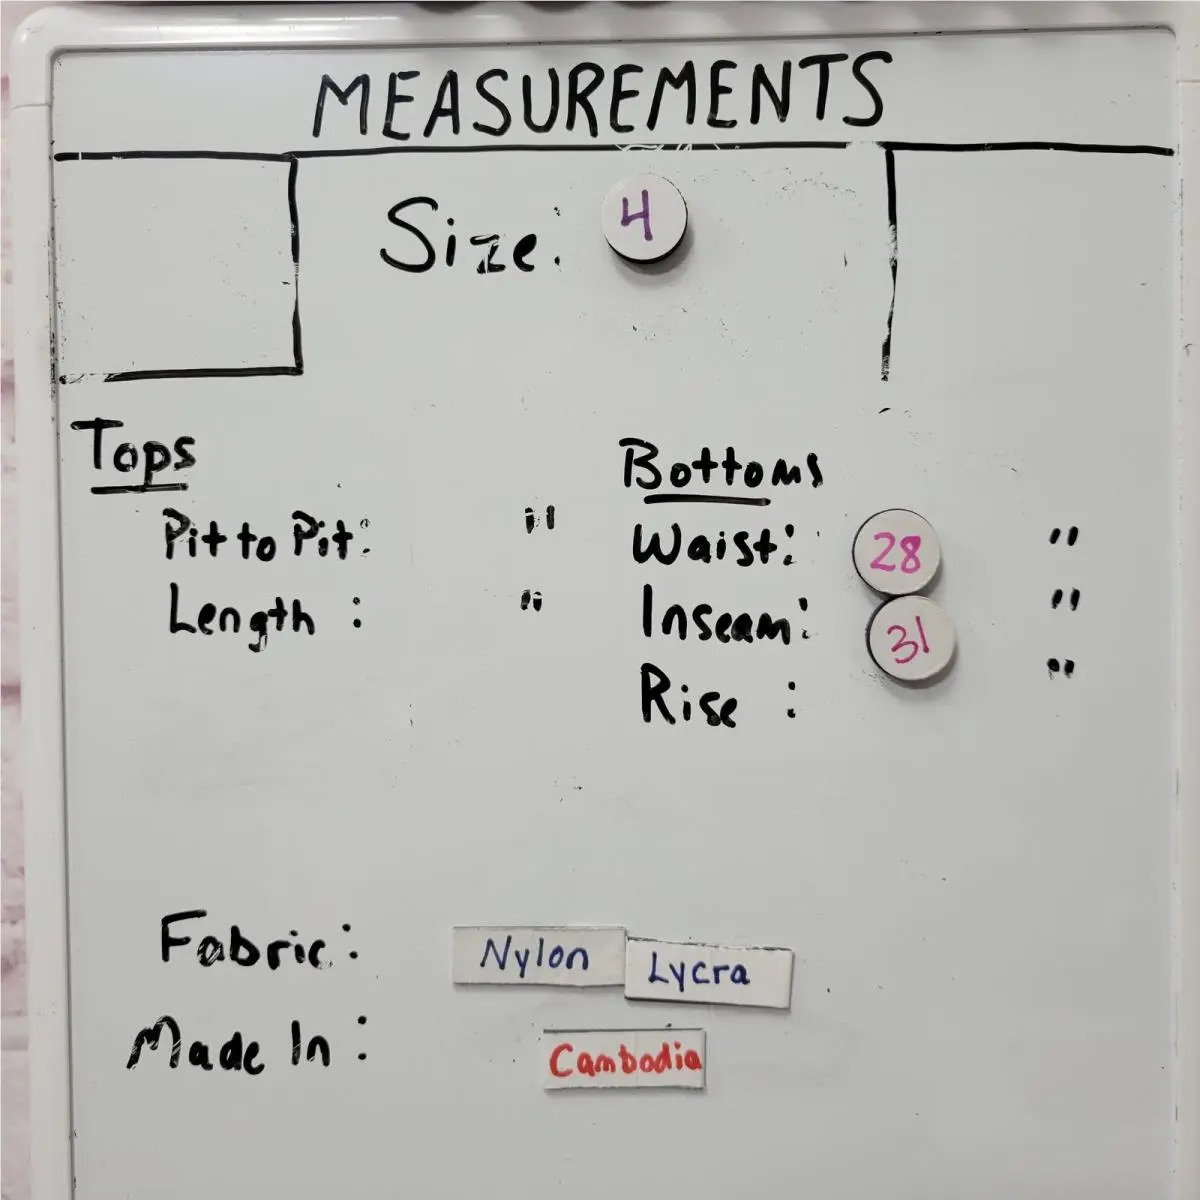 MEASUREMENTS
Size: 4
Tops
Pit to Pit: "
Length : "
Bottoms
Waist: 28 "
Inseam: 31 "
Rise : "
Fabric: Nylon Lycra
Made In: Cambodia